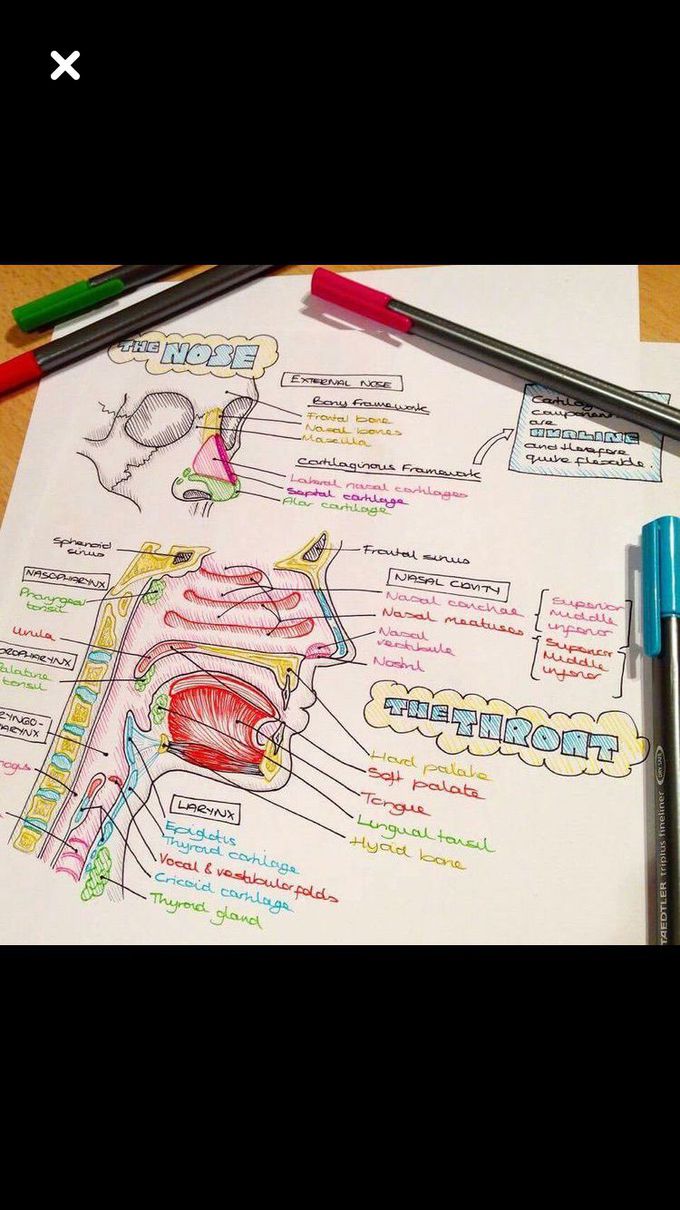 THE NOSE
EXTERNAL NOSE
Bony Framework
Frontal bone
Nasal bones
Maxilla
Cartilaginous Framework
Lateral nasal cartilages
Septal cartilage
Alar cartilage
are
HYALINE
and therefore
quite flexible.
Sphenoid
sinus
Frontal sinus
NASOPHARYNX
Pharyngeal
tonsil
Uvula
tonsil
NASAL CAVITY
Nasal conchae
Nasal meatuses
Nasal
vestibule
Nostril
Superior
Middle
Inferior
Superior
Middle
Inferior
THE THROAT
Hard palate
Soft palate
Tongue
Lingual tonsil
Hyoid bone
LARYNX
Epiglottis
Thyroid cartilage
Vocal & vestibular folds
Cricoid cartilage
Thyroid gland
STAEDTLER triplus fineliner